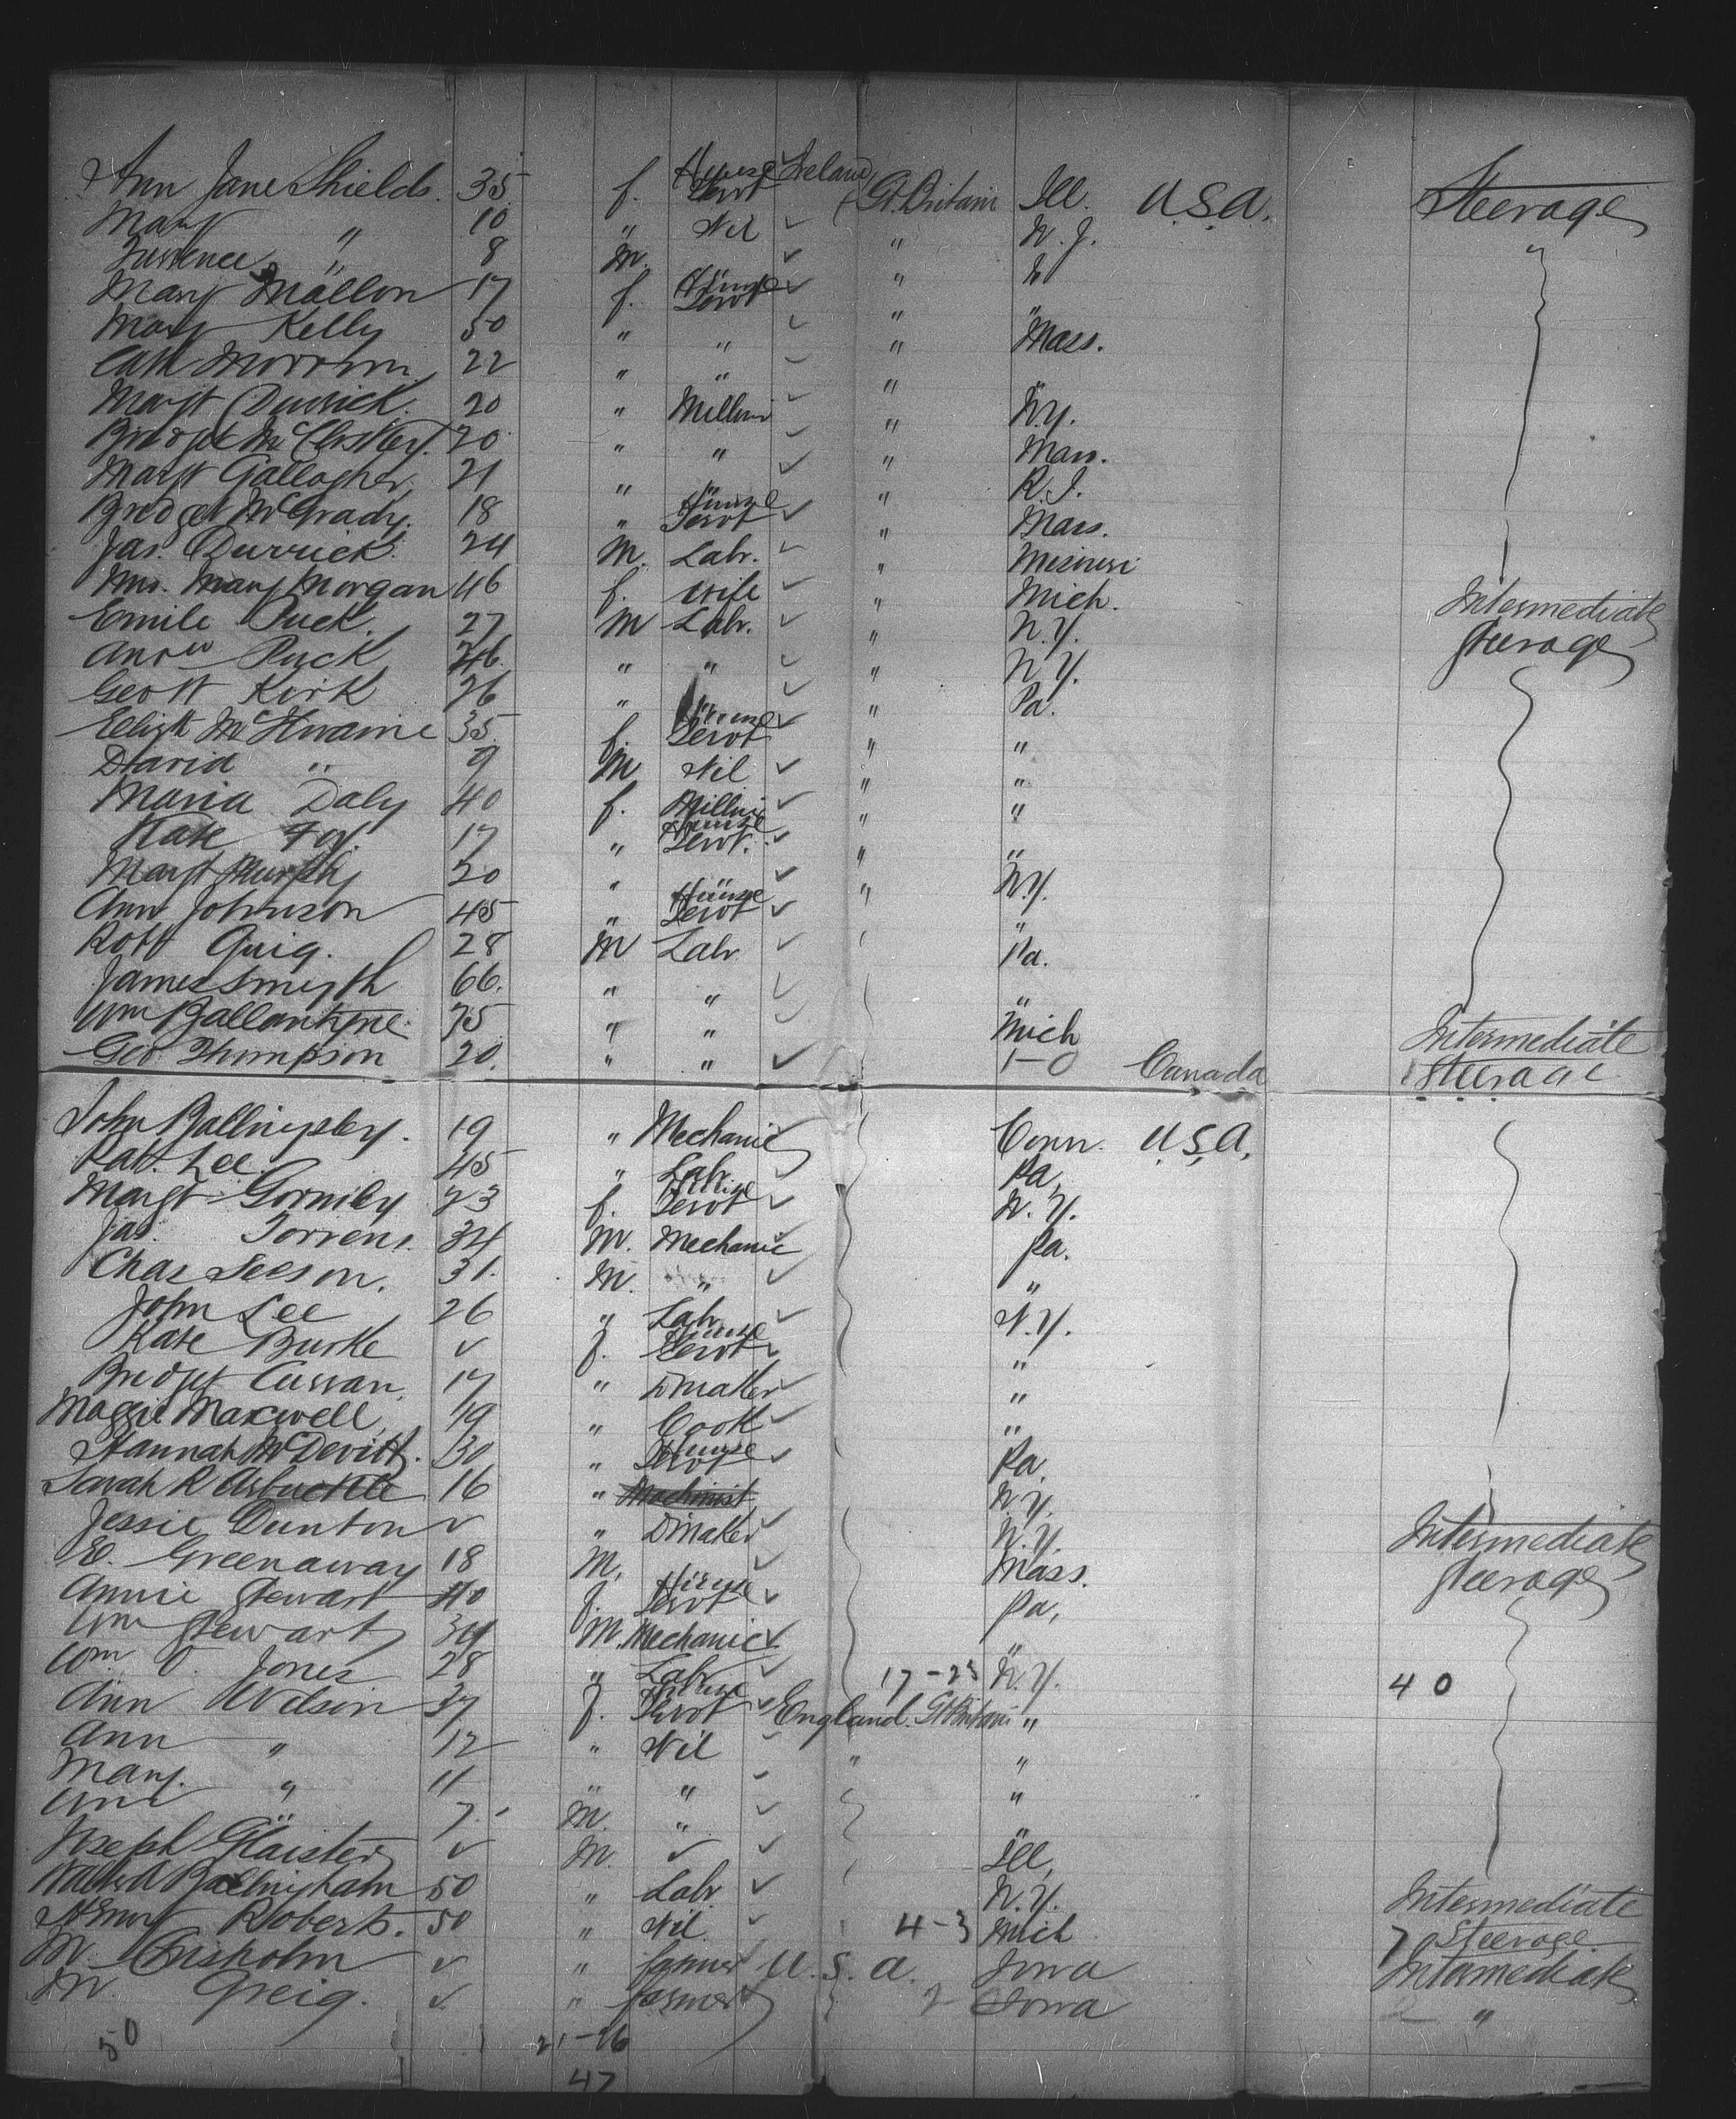 Ann Jane Shields. 35 f. House Servt Ireland Gt. Britain Ill. U.S.A. Steerage
Mary " 10 " Nil " N. J. "
8 M. "
Mary Mallon 17 f. House Servt " "
Mary Kelly 50 " " " Mass.
Cath 22 " " " "
Margt 20 " " N.Y.
Bridget 20 " " " Mass.
Margt Gallagher 21 " " " R. I.
Bridget McGrady. 18 " House Servt " Mass.
Jas. Durrick 24 M. Labr. "
Mrs. Mary Morgan 46 f. Wife " Mich. Intermediate
Emile Puck 27 M Labr. " N.Y. Steerage
Andw Puck " " " N.Y.
Kirk 26 " " " Pa.
35 f. House Servt " "
David " 9 M Nil " "
Maria Daly 40 f. " "
Kate Foy. 17 " House Servt. " "
Margt Murphy 20 " " N.Y.
Ann Johnson 45 " House Servt "
Robt Quig. 28 M Labr Pa.
James Smyth 66. " " "
Wm Ballantyne 75 " " Mich Intermediate
Geo Thompson 20. " " 1-0 Canada Steerage
John 19 " Mechanic Conn. U.S.A.
Lee 45 " Labr Pa.
Margt Gormley 23 f. House Servt N.Y.
Jas. Torrens. 34 M. Mechanic Pa.
Chas 31. M. " "
John Lee 26 " Labr N.Y.
Kate Burke f. House Servt "
Bridget Curran. 17 " D maker "
Maggie Maxwell 19 " Cook "
Hannah McDevitt. 30 " House Servt Pa.
Sarah R Arbuckle 16 " Machinist N.Y.
Jessie Dunton " D maker N.Y. Intermediate
E. Greenaway 18 M. Mass. Steerage
Annie Stewart 40 f. House Servt Pa.
Wm Stewart 34 M. Mechanic "
Wm O. Jones 28 " Labr 17-23 N.Y. 40
Ann 37 f. House Servt England Gt Britain "
Ann " 12 " Nil " "
Mary. " 11 " " "
Wm " 7. M. " "
Joseph Glaister M. Ill.
Ballingham 50 " Labr N.Y. Intermediate
Henry Roberts. 50 " Nil 4-3 Mich 7 Steerage
M. Chisholm " farmer U.S.A. Iowa Intermediate
M. Greig. " farmer 2 Iowa 2 "
50 21-26
47